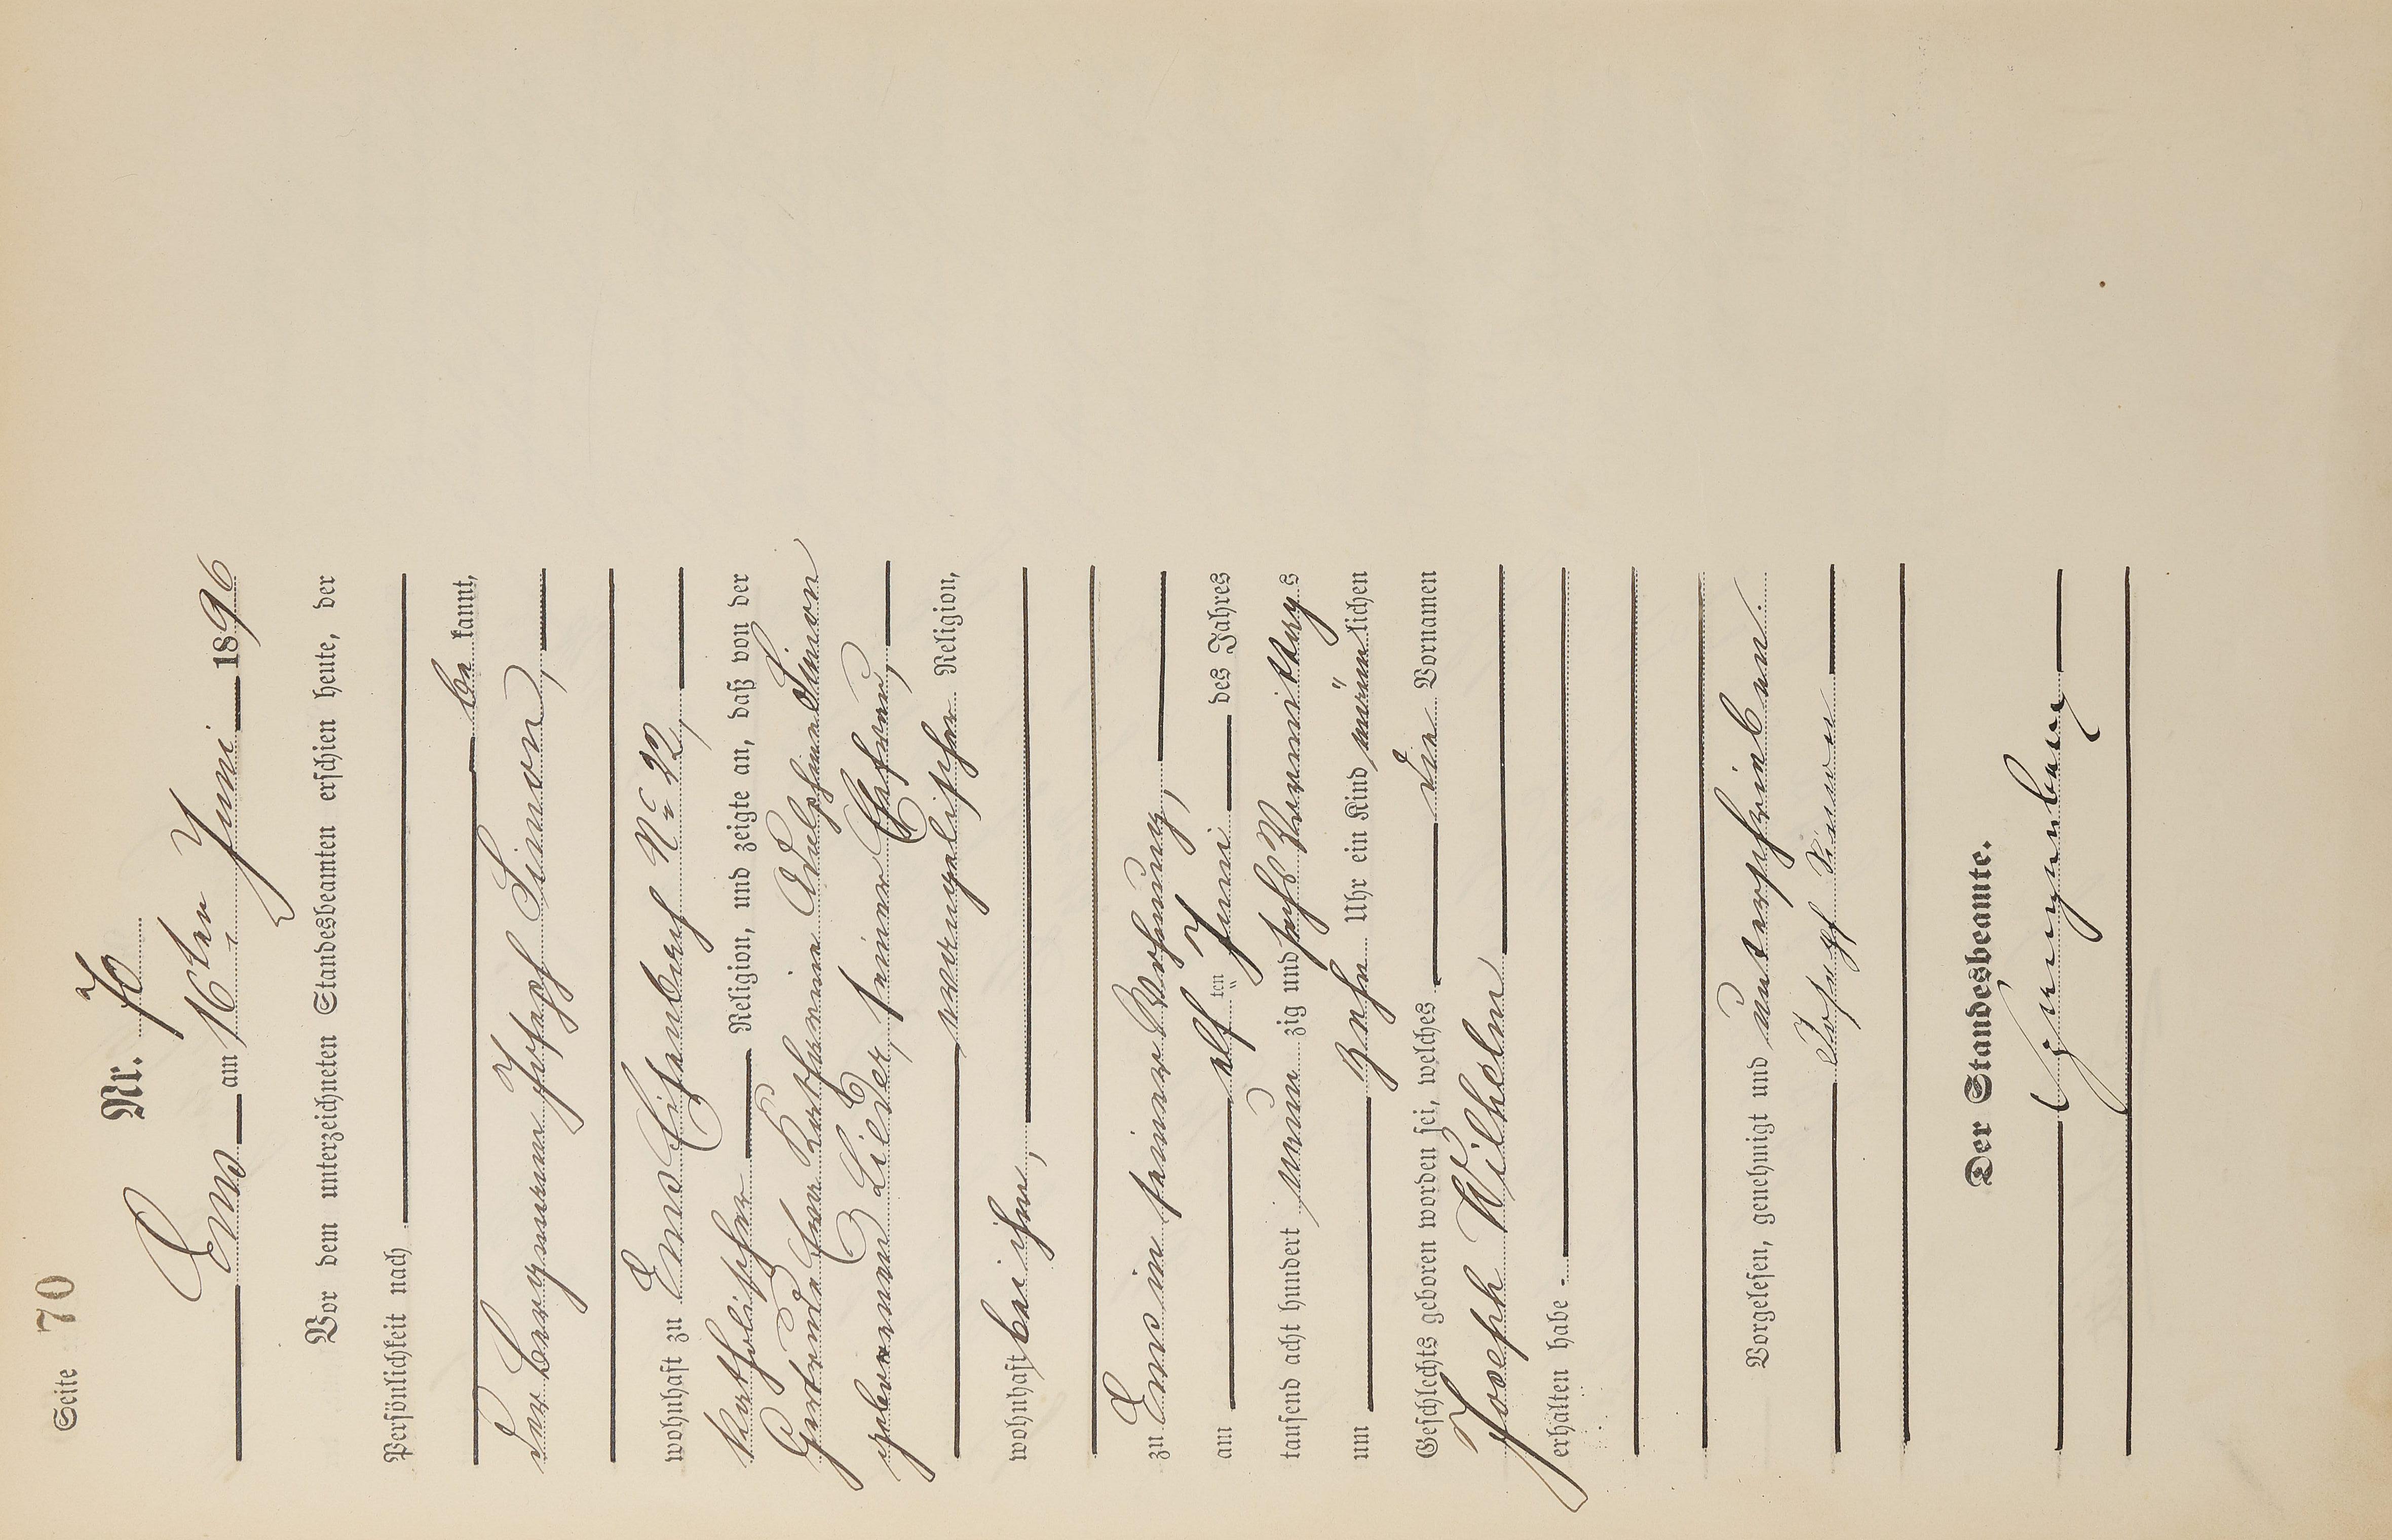 Seite 70
Nr. 70
Ems am 16ten Juni 1896
Vor dem unterzeichneten Standesbeamten erschien heute, der
Persönlichkeit nach
be kannt,
der Bergmann Joseph Simon,
wohnhaft zu Ems Eisenbach No 22,
katholischer Religion, und zeigte an, daß von der
Gertrude Eva Katharina Simon
geborenen Lieder, seiner Ehefrau,
evangelischer Religion,
wohnhaft bei ihm,
zu Ems in seiner Wohnung,
am elf ten Juni des Jahres
tausend acht hundert neun zig und sechs Vormittags
um zehn Uhr ein Kind männ lichen
Geschlechts geboren worden sei, welches die Vornamen
Joseph Wilhelm
erhalten habe.
Vorgelesen, genehmigt und unterschrieben.
Joseph Simon
Der Standesbeamte.